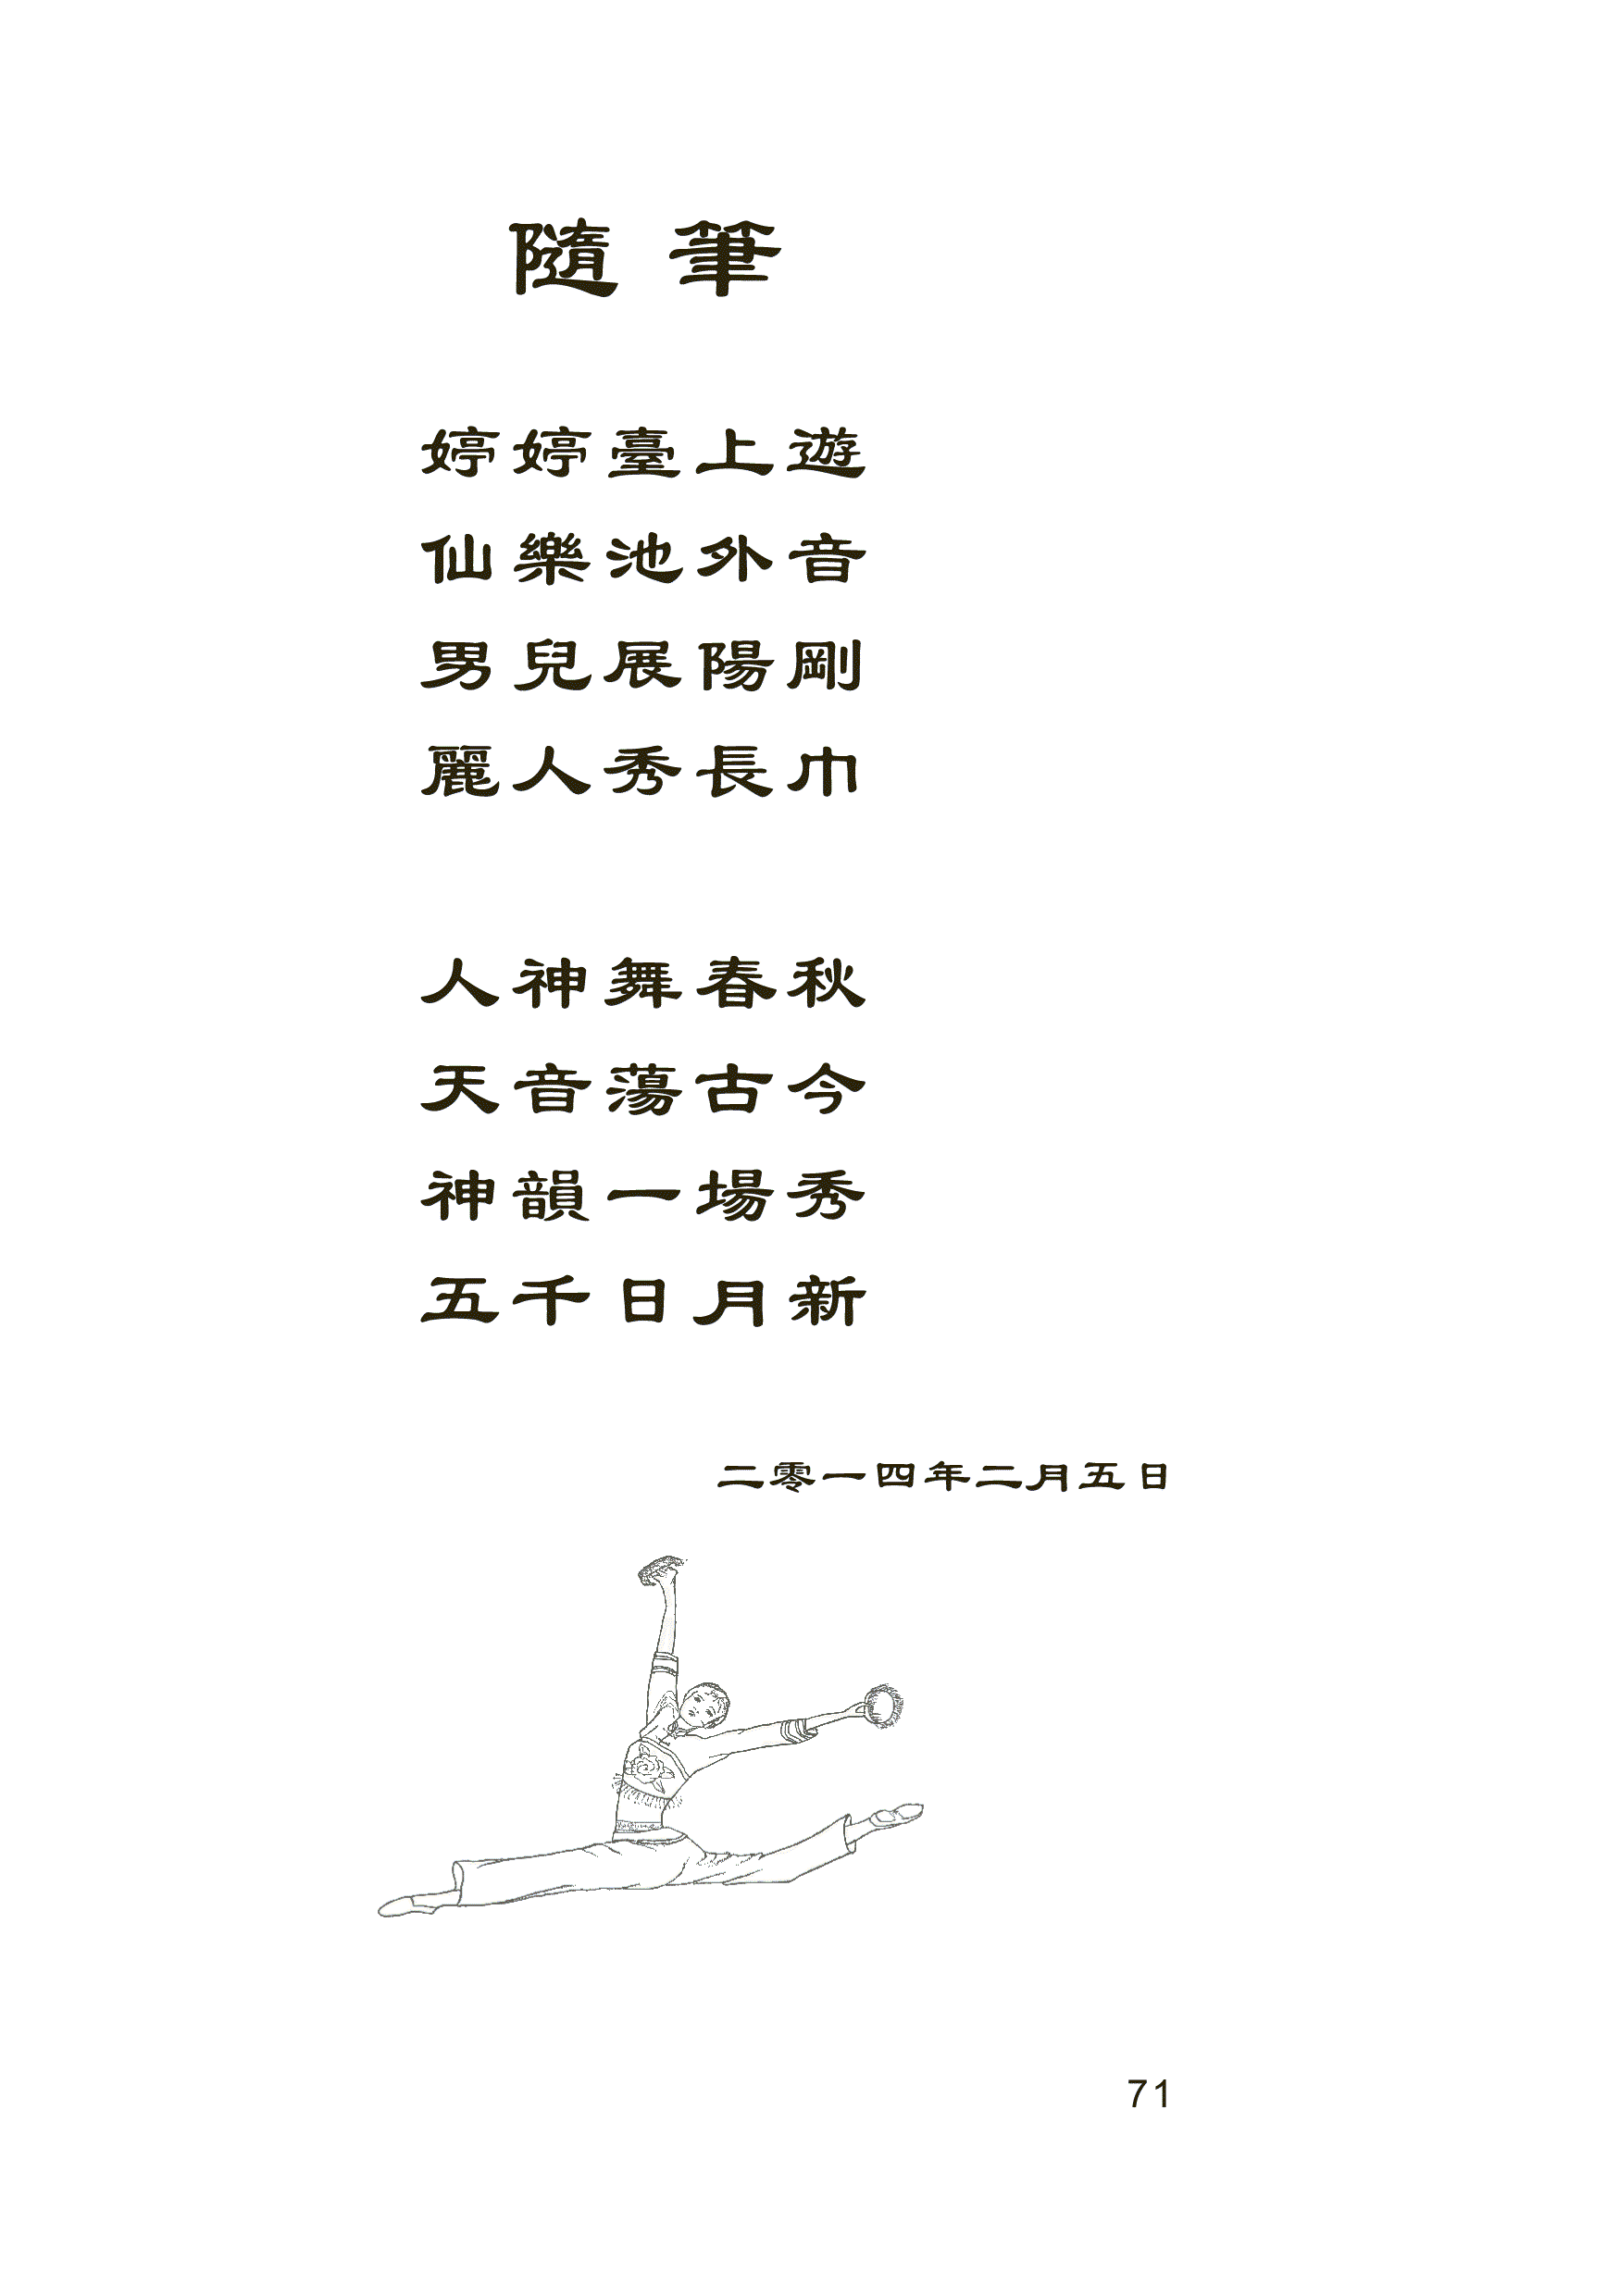 隨筆
婷婷臺上遊
仙樂池外音
男兒展陽剛
麗人秀長巾
人神舞春秋
天音蕩古今
神韻一場秀
五千日月新
二零一四年二月五日
71